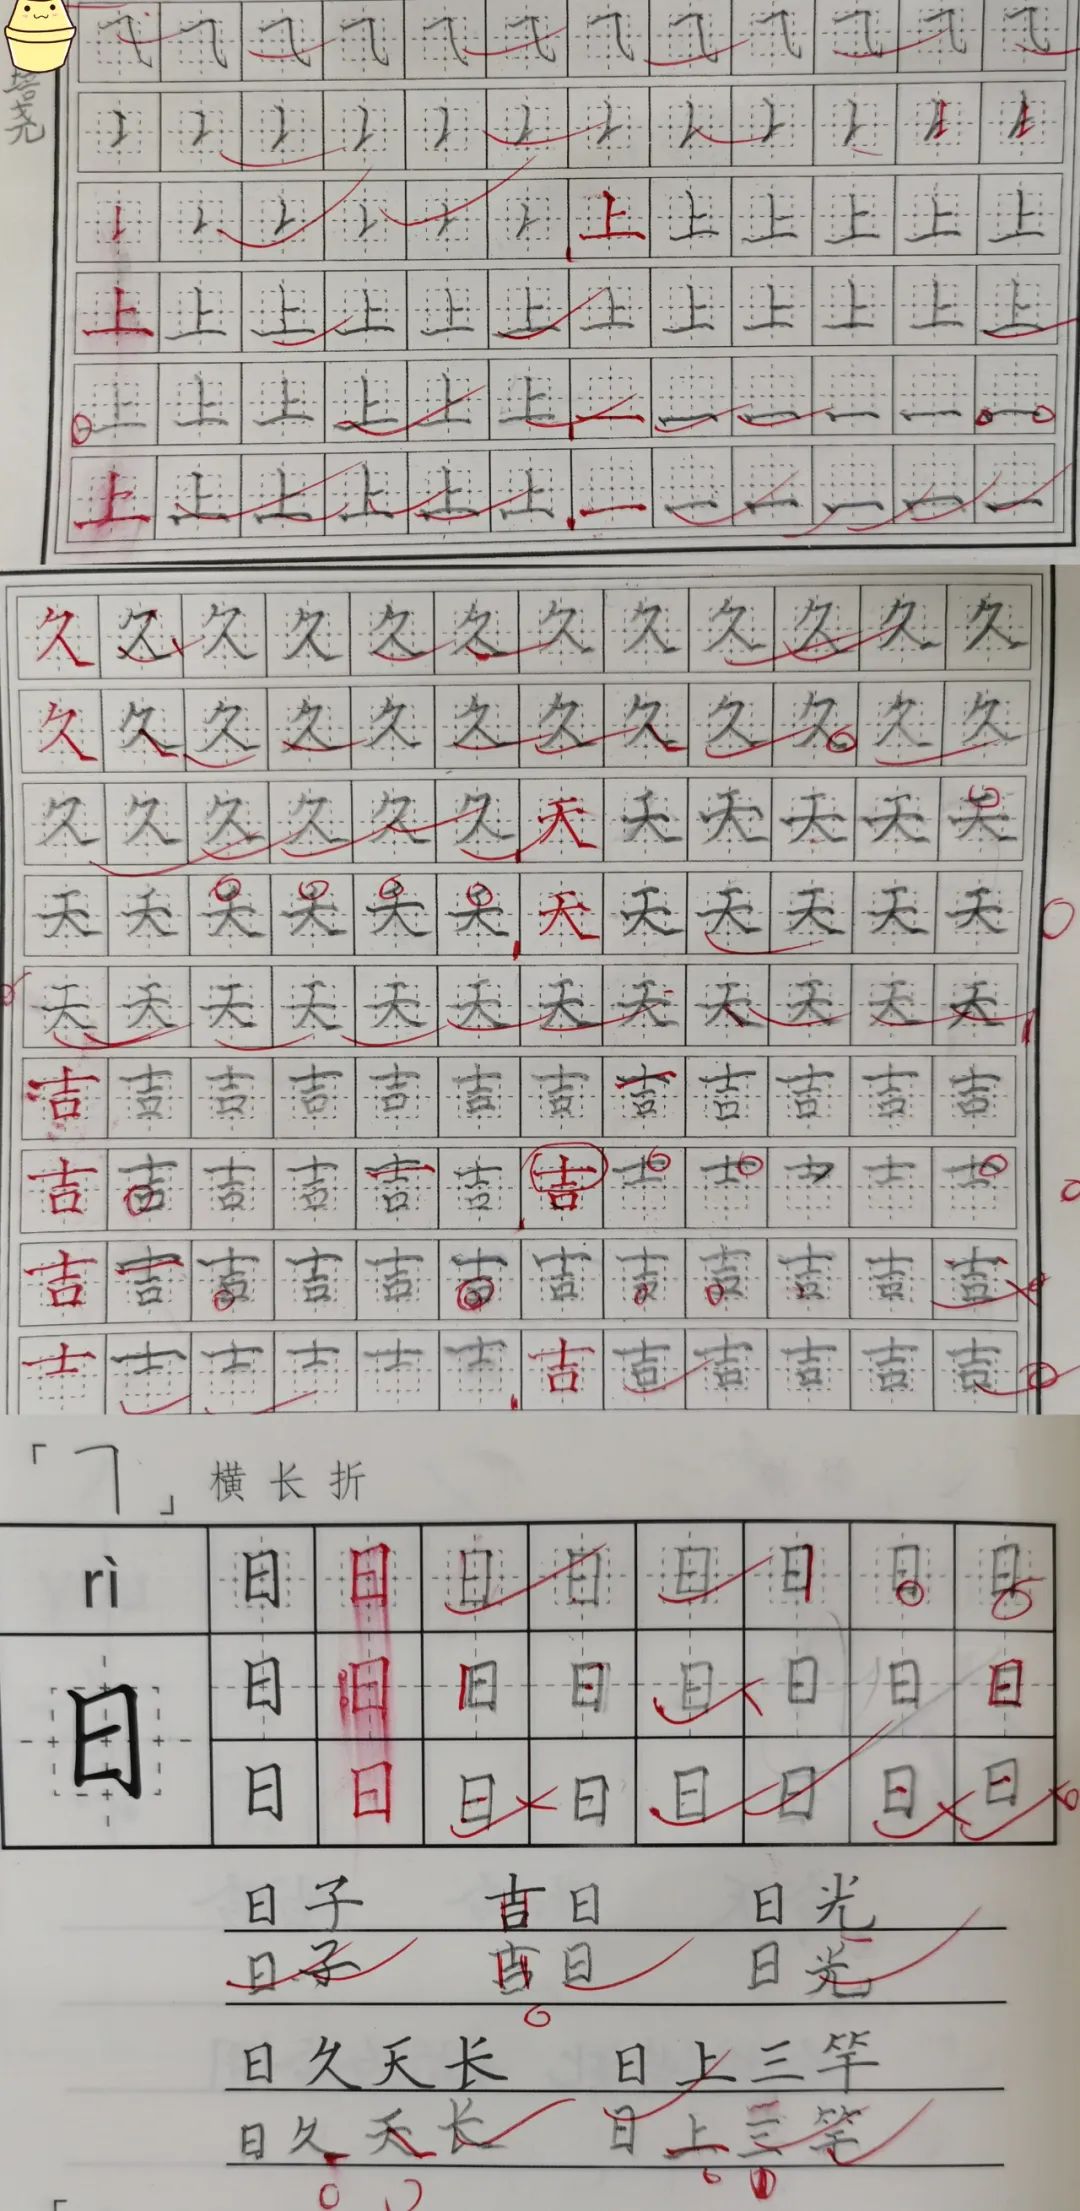 上上上上上上
上上上上上上上上上上上上
上上上上上上一一一一一一
上上上上上上一一一一一一
久久久久久久久久久久久久
久久久久久久久久久久久久
久久久久久久天天天天天天
天天天天天天天天天天天天
天天天天天天天天天天天天
吉吉吉吉吉吉吉吉吉吉吉吉
吉吉吉吉吉吉吉士士士士士
吉吉吉吉吉吉吉吉吉吉吉吉
士士士士士士吉吉吉吉吉吉
「㇕」横长折
rì 日日日日日日日日
日 日日日日日日日日
日日日日日日日日
日子 吉日 日光
日子 吉日 日光
日久天长 日上三竿
日久天长 日上三竿